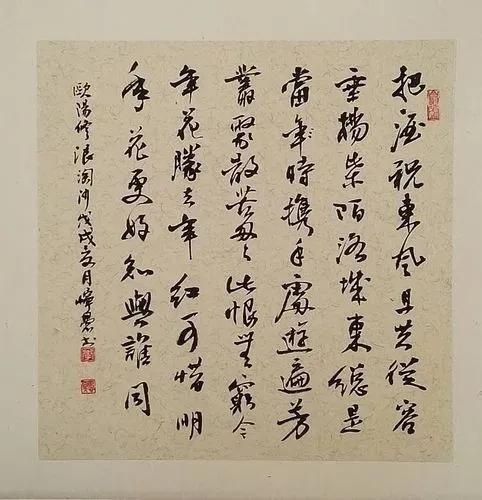 把酒祝東風且共從容
垂楊紫陌洛城東總是
當年時攜手處遊遍芳
叢聚散苦匆々此恨無窮今
年花勝去年紅可惜明
年花更好知與誰同
歐陽修浪淘沙戊戌夏月书